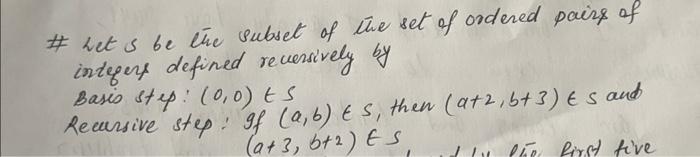 # Let S be the subset of the set of ordered pairs of
integers defined recursively by
Basis step: (0,0) ∈ S
Recursive step: If (a,b) ∈ S, then (a+2, b+3) ∈ S and
(a+3, b+2) ∈ S
the first five